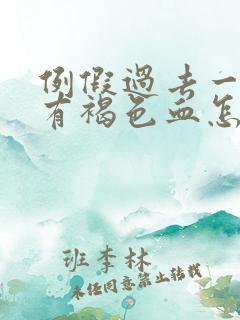 例假过去一
有褐色血怎
班李林
未经同意禁止转载